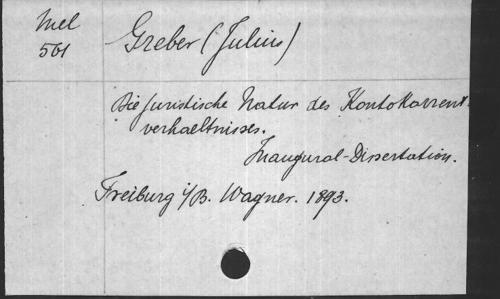 Mel
561
Greber (Julius)
Die juristische Natur des Kontokorrent-
verhaeltnisses.
Inaugural-Dissertation.
Freiburg i/B. Wagner. 1893.